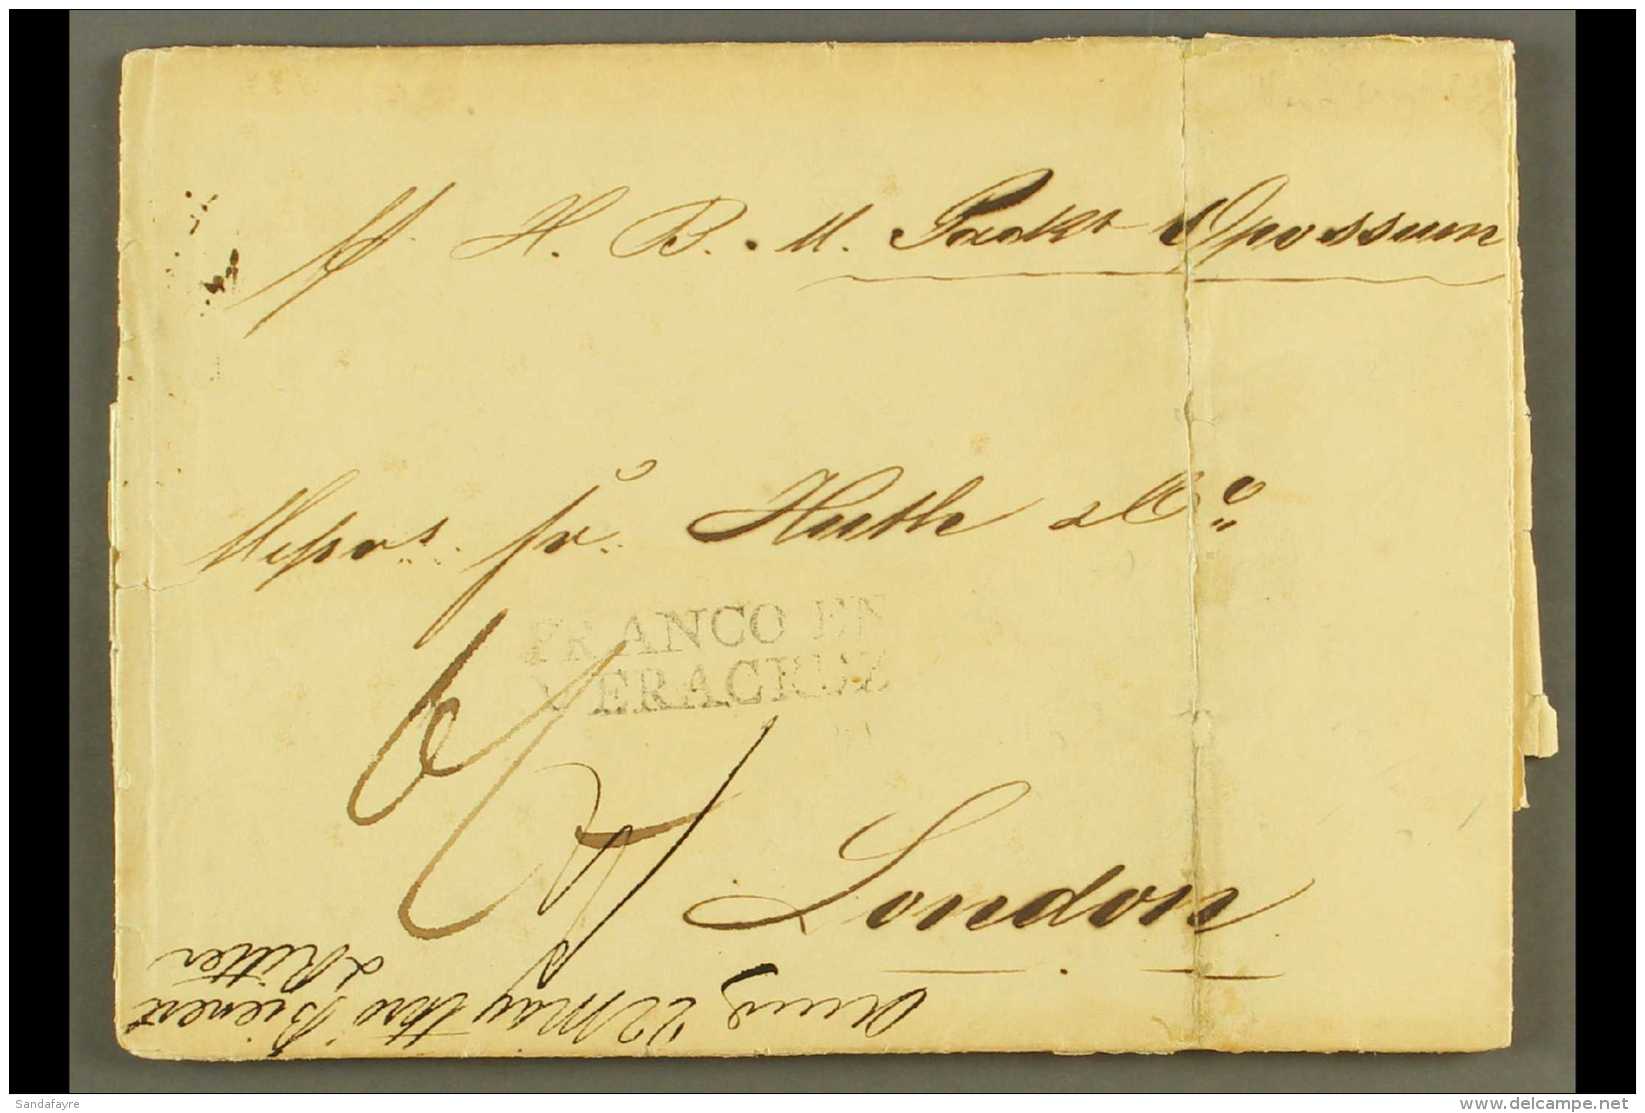 H. B. M. Packt Opossum
Messrs. Fr. Huth & Co
FRANCO EN
VERACRUZ
London
22 May thro Bienert
& Ritter
Sandafayre
www.delcampe.net